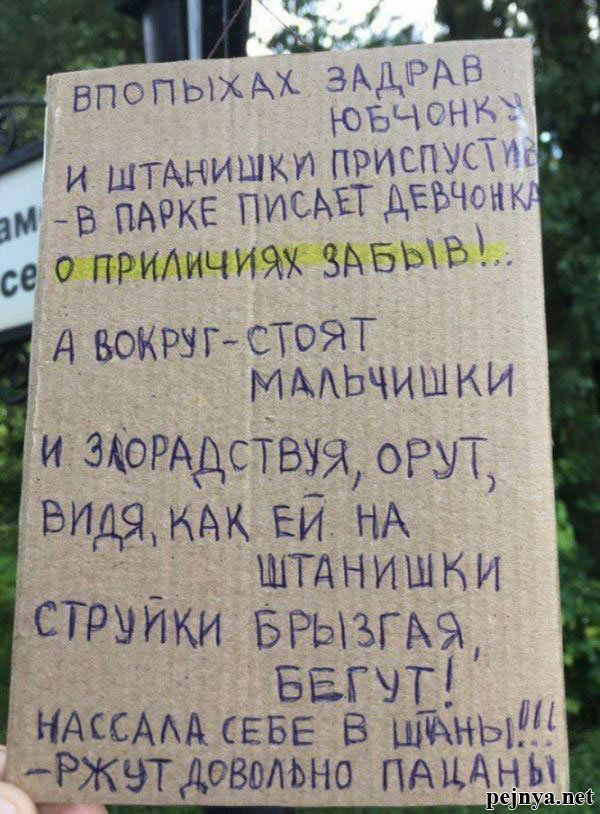 ВПОПЫХАХ ЗАДРАВ
ЮБЧОНКУ
И ШТАНИШКИ ПРИСПУСТИВ
-В ПАРКЕ ПИСАЕТ ДЕВЧОНКА
О ПРИЛИЧИЯХ ЗАБЫВ!..
А ВОКРУГ- СТОЯТ
МАЛЬЧИШКИ
И ЗЛОРАДСТВУЯ, ОРУТ,
ВИДЯ, КАК ЕЙ НА
ШТАНИШКИ
СТРУЙКИ БРЫЗГАЯ,
БЕГУТ!
НАССАЛА СЕБЕ В ШТАНЫ!!!
-РЖУТ ДОВОЛЬНО ПАЦАНЫ
pejnya.net